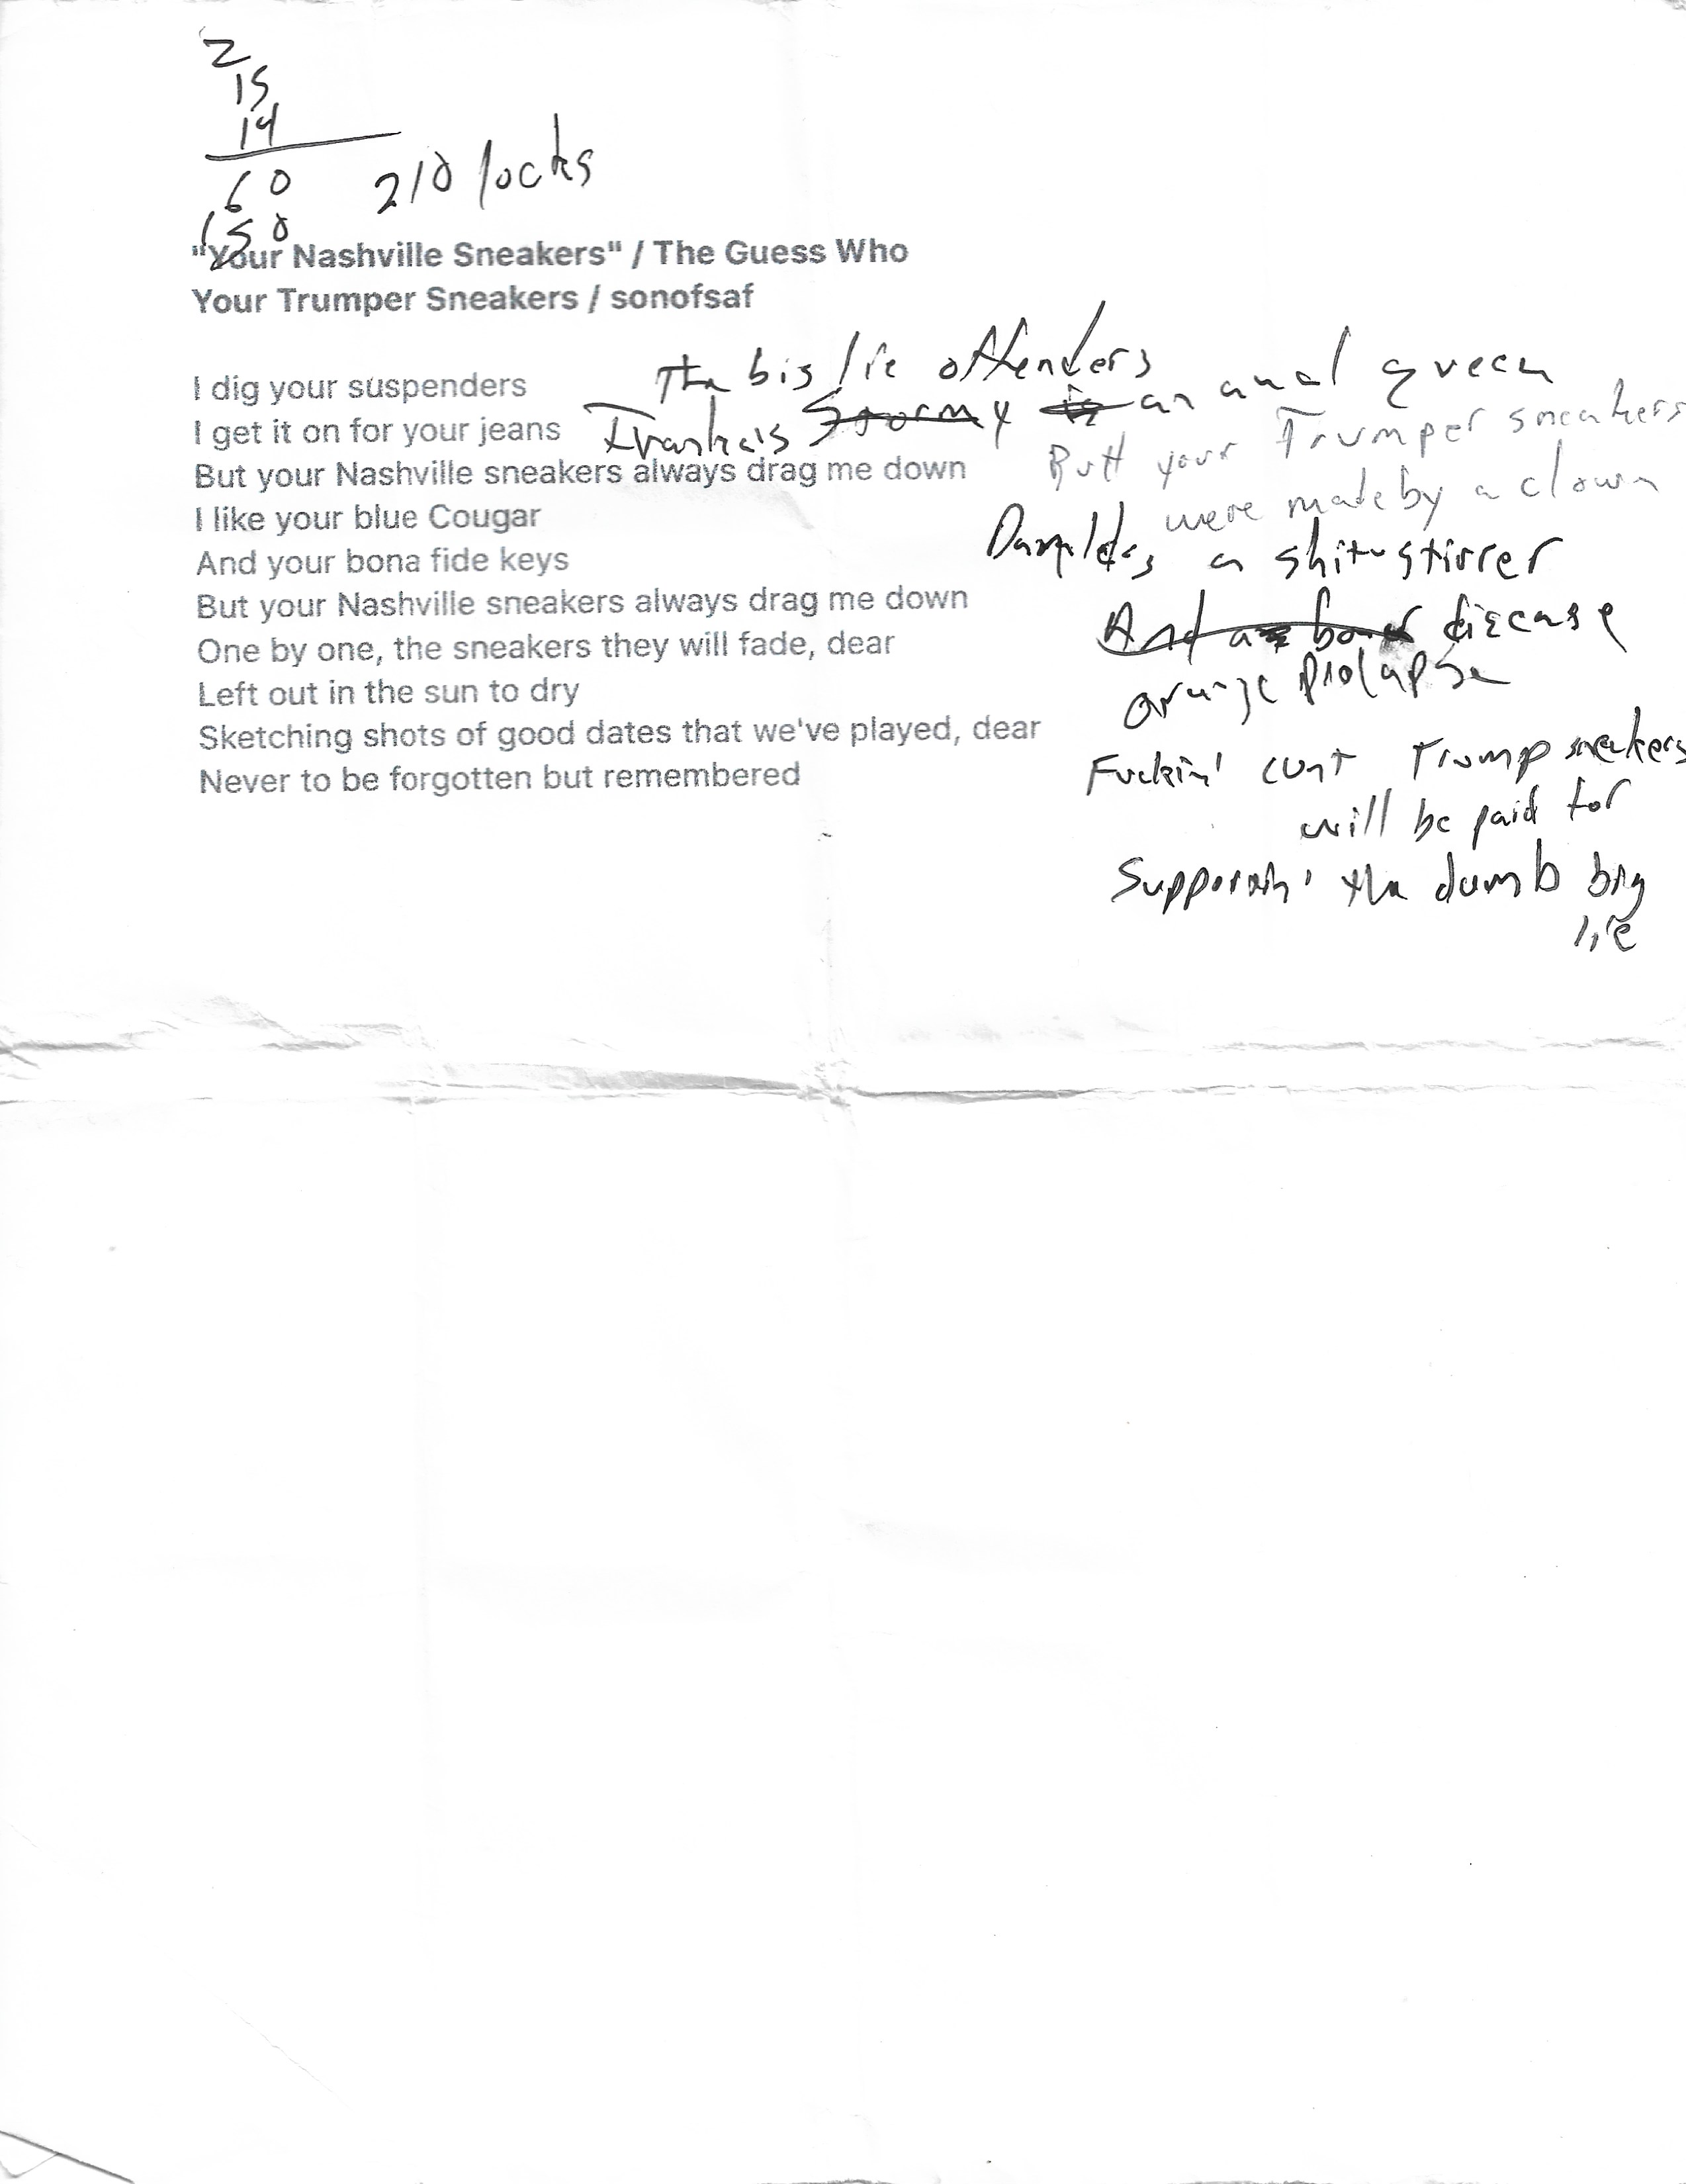 2
15
14
60
150
210 locks
"Your Nashville Sneakers" / The Guess Who
Your Trumper Sneakers / sonofsaf
I dig your suspenders
The big lie offenders
I get it on for your jeans
Ivanka's Stormy is an anal queen
But your Nashville sneakers always drag me down
Butt your Trumper sneakers
were made by a clown
I like your blue Cougar
a shit-stirrer
And your bona fide keys
But your Nashville sneakers always drag me down
And a disease
One by one, the sneakers they will fade, dear
orange prolapse
Left out in the sun to dry
Sketching shots of good dates that we've played, dear
Fuckin' cunt Trump sneakers
Never to be forgotten but remembered
will be paid for
Supportin' the dumb big
lie